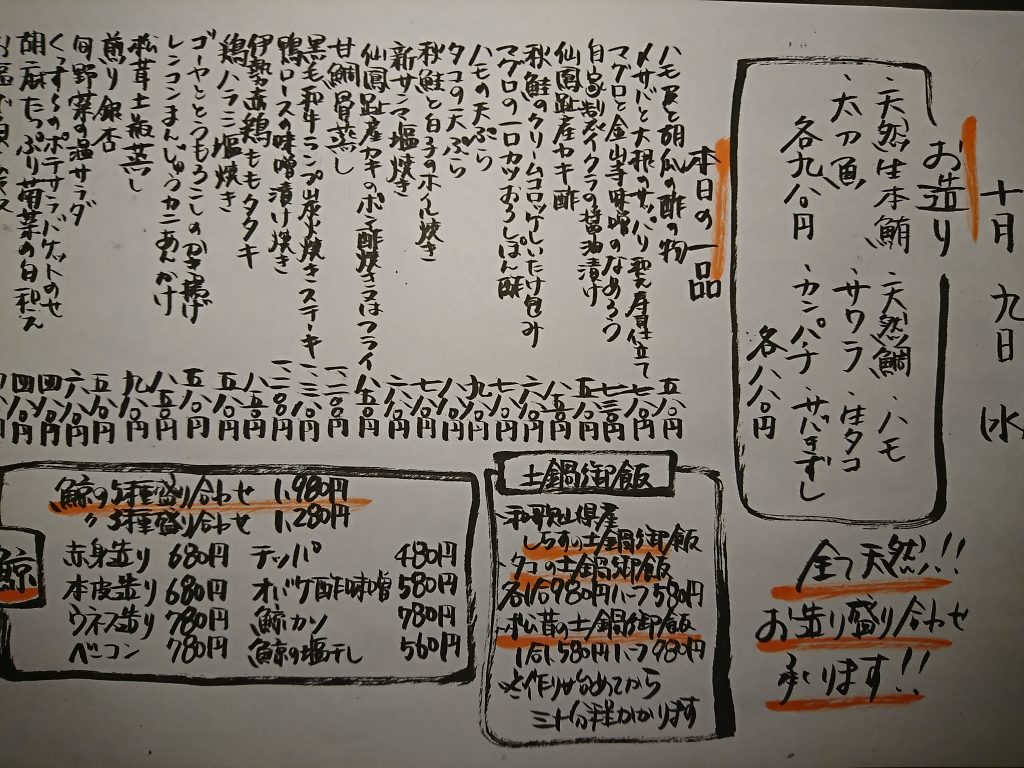 十月 九日 (水
お造り
、天然生本鮪 、天然鯛 、ハモ
、太刀魚 、サワラ 、生タコ
各九八〇円 、カンパチ 、サバきずし
各八八〇円
全て天然!!
お造り盛り合わせ
承ります!!
本日の一品
ハモ皮と胡瓜の酢の物 五八〇円
〆サバと大根のサッパリ和え 仕立て 七八〇円
マグロと金山寺味噌のなめろう
自家製イクラの醤油漬け
仙鳳趾産カキ酢
秋鮭のクリームコロッケしいたけ包み
マグロの一口カツおろしぽん酢 七八〇円
ハモの天ぷら 九八〇円
タコの天ぷら 六八〇円
秋鮭と白子のホイル焼き 七八〇円
新サンマ塩焼き 六八〇円
仙鳳趾産カキのポン酢焼き又はフライ 八五〇円
甘鯛骨蒸し
黒毛和牛ランプ炭火焼きステーキ
鴨ロースの味噌漬け焼き
伊勢赤鶏ももタタキ 八五〇円
鶏ハラミ塩焼き 五八〇円
ゴーヤととうもろこしのかき揚げ 五八〇円
レンコンまんじゅうカニあんかけ 八八〇円
松茸土瓶蒸し 九八〇円
煎り銀杏 五八〇円
旬野菜の温サラダ 六八〇円
くっすーのポテサラバケットのせ 四八〇円
胡麻たっぷり菊菜の白和え 四八〇円
土鍋御飯
、和歌山県産
しらすの土鍋御飯
、タコの土鍋御飯
各1合980円ハーフ580円
、松茸の土鍋御飯
1合1,580円ハーフ980円
※作り始めてから
三十分程かかります
鯨
鯨の5種盛り合わせ 1,980円
〃 3種盛り合わせ 1,280円
赤身造り 680円 テッパ 480円
本皮造り 680円 オバケ酢味噌 580円
ウネス造り 780円 鯨カツ 780円
ベーコン 780円 鯨の塩干し 560円